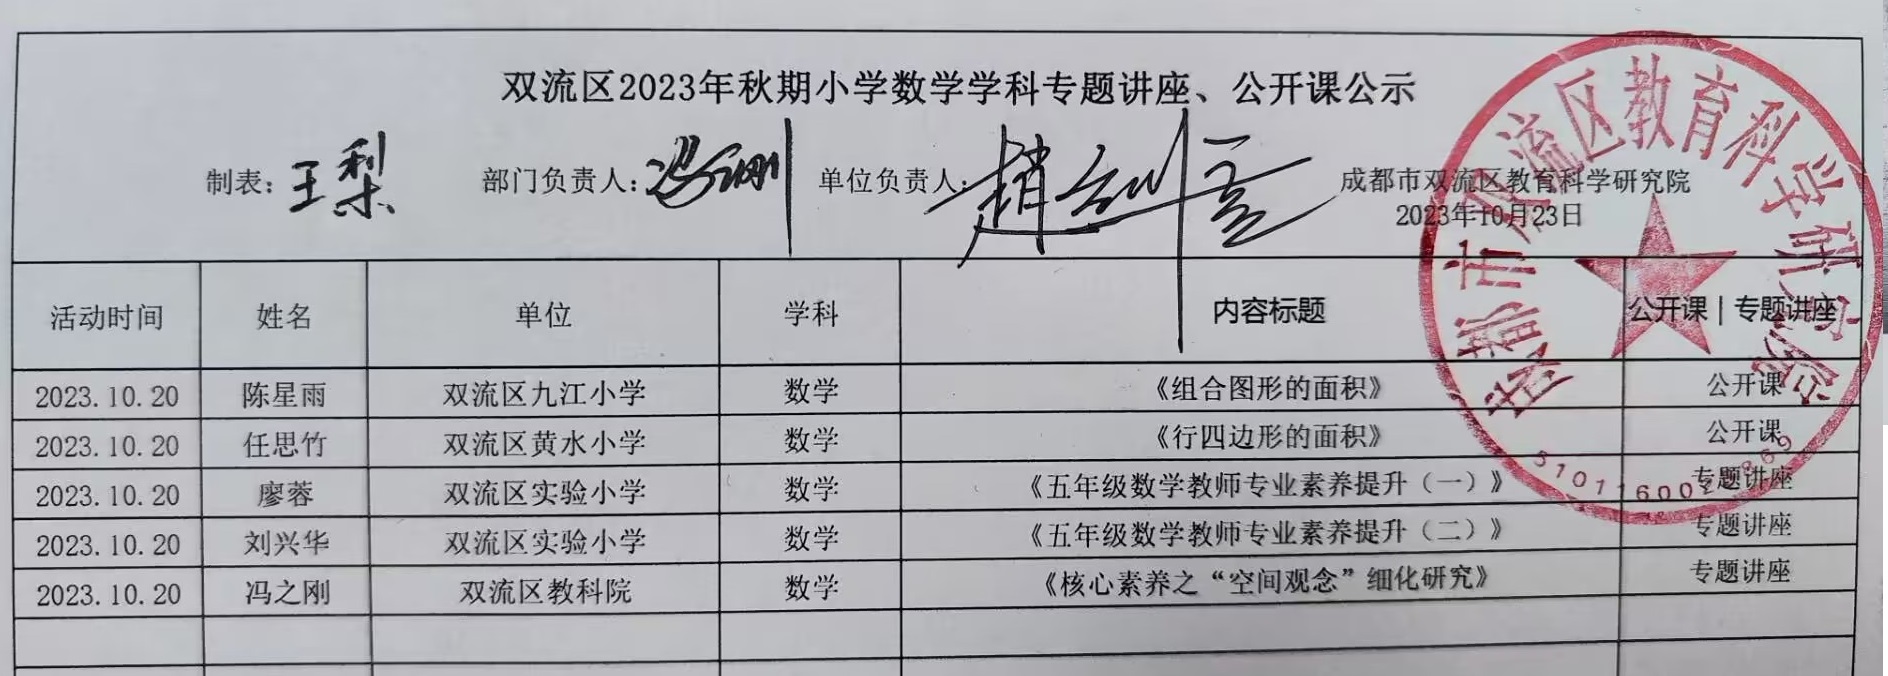 双流区2023年秋期小学数学学科专题讲座、公开课公示
制表：王梨 部门负责人： 单位负责人： 成都市双流区教育科学研究院
2023年10月23日
成都市双流区教育科学研究院
活动时间 姓名 单位 学科 内容标题 公开课|专题讲座
2023.10.20 陈星雨 双流区九江小学 数学 《组合图形的面积》 公开课
2023.10.20 任思竹 双流区黄水小学 数学 《行四边形的面积》 公开课
2023.10.20 廖蓉 双流区实验小学 数学 《五年级数学教师专业素养提升（一）》 专题讲座
2023.10.20 刘兴华 双流区实验小学 数学 《五年级数学教师专业素养提升（二）》 专题讲座
2023.10.20 冯之刚 双流区教科院 数学 《核心素养之“空间观念”细化研究》 专题讲座